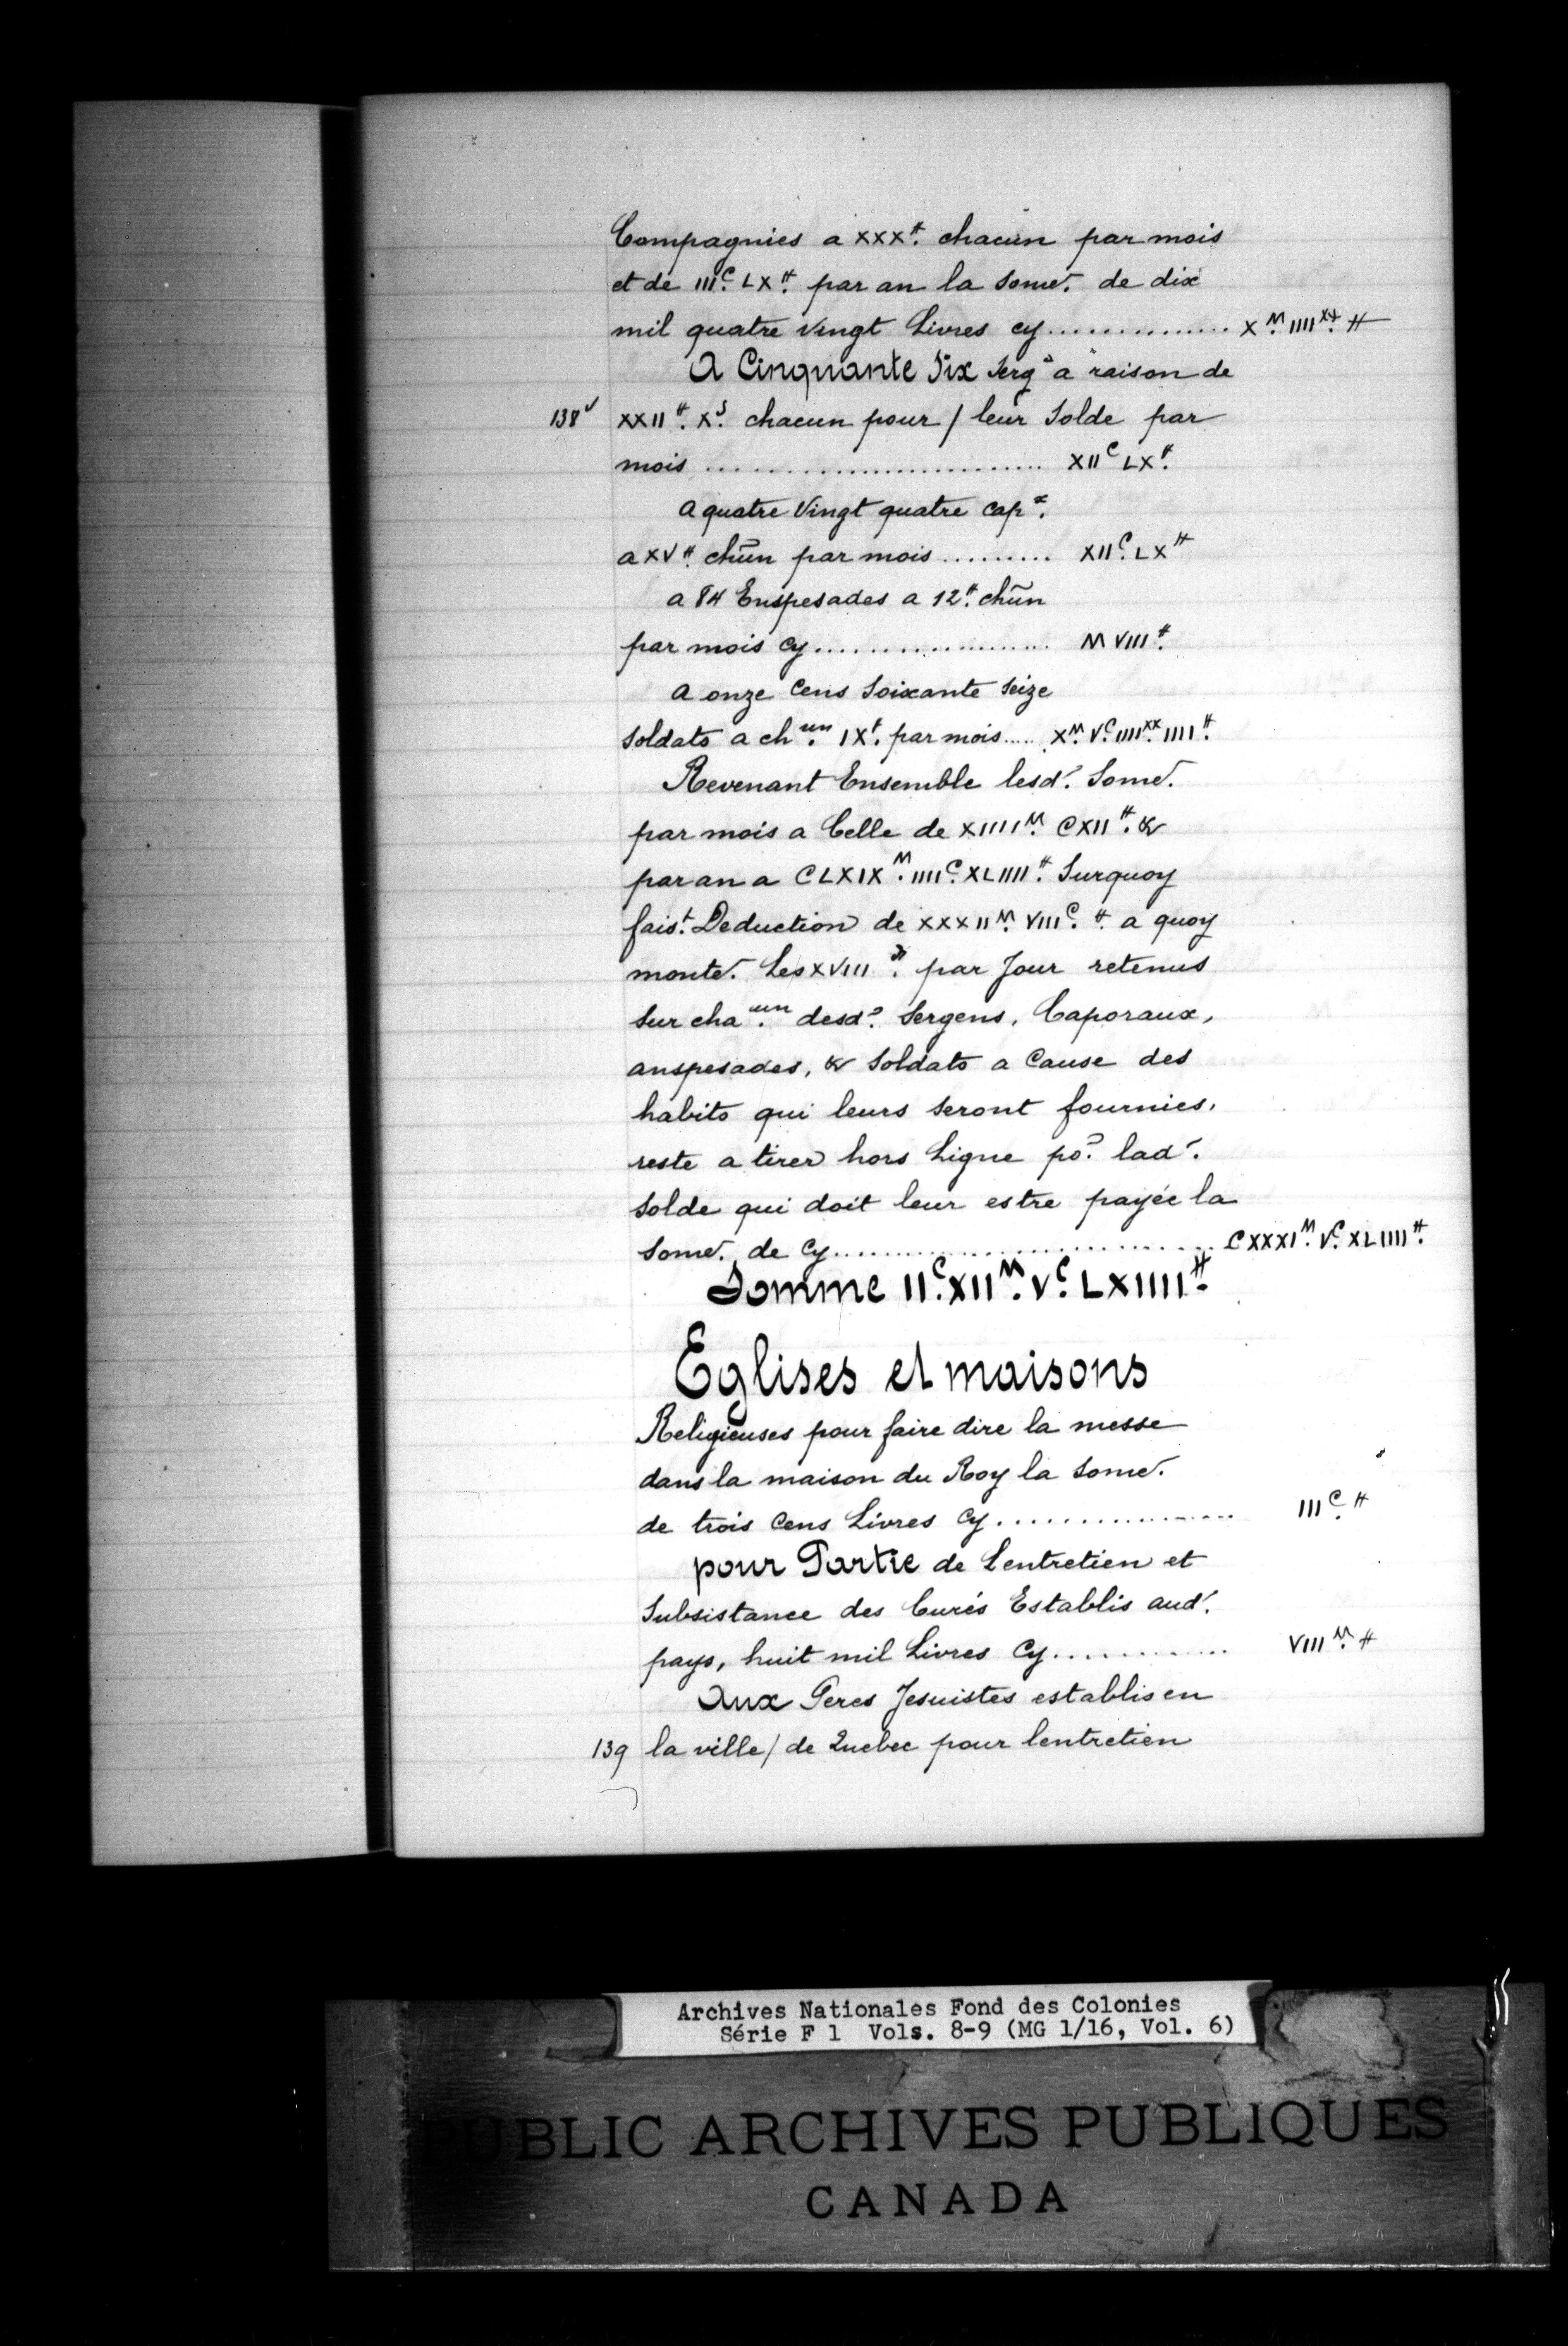 Compagnies a XXX# chacun par mois
et de IIIᶜ. LX# par an la Some. de dix
mil quatre Vingt Livres cy............... Xᴹ. IIIIˣˣ. #
A Cinquante Six Serg.ˢ a raison de
138ᵛ XXII#. Xˢ. chacun pour / leur Solde par
mois .......................... XIIᶜ LX#.
a quatre Vingt quatre cap.ˣ
a XV# chūn par mois ......... XIIᶜ. LX#
a 84 Enspesades a 12# chūn
par mois cy.................... M VIII#.
a onze Cens Soixante Seize
Soldats a chᵘⁿ. IX#. par mois..... Xᴹ. Vᶜ. IIIIˣˣ. IIII#.
Revenant Ensemble lesd. Some.
par mois a Celle de XIIIIᴹ. CXII#. &
par an a CLXIXᴹ. IIIIᶜ. XLIIII#. Surquoy
fais.ᵗ Deduction de XXXIIᴹ. VIIIᶜ. #. a quoy
monte. Les XVIII ᵈ. par Jour retenus
Sur chaᵘⁿ. desd. Sergens, Caporaux,
anspesades, & Soldats a Cause des
habits qui leurs Seront fournies,
reste a tirer hors Ligne po. lad.
Solde qui doit leur estre payée la
Some. de Cy........................... CXXXIᴹ. Vᶜ. XLIIII#.
Somme IIᶜ. XIIᴹ. Vᶜ. LXIIII#.
Eglises et maisons
Religieuses pour faire dire la messe
dans la maison du Roy la Some.
de trois Cens Livres Cy................ IIIᶜ. #
pour Partie de Lentretien et
Subsistance des Curés Establis aud.
pays, huit mil Livres Cy............ VIIIᴹ. #
Aux Peres Jesuistes establis en
139 la ville / de Quebec pour lentretien
Archives Nationales Fond des Colonies
Série F 1 Vols. 8-9 (MG 1/16, Vol. 6)
PUBLIC ARCHIVES PUBLIQUES
CANADA